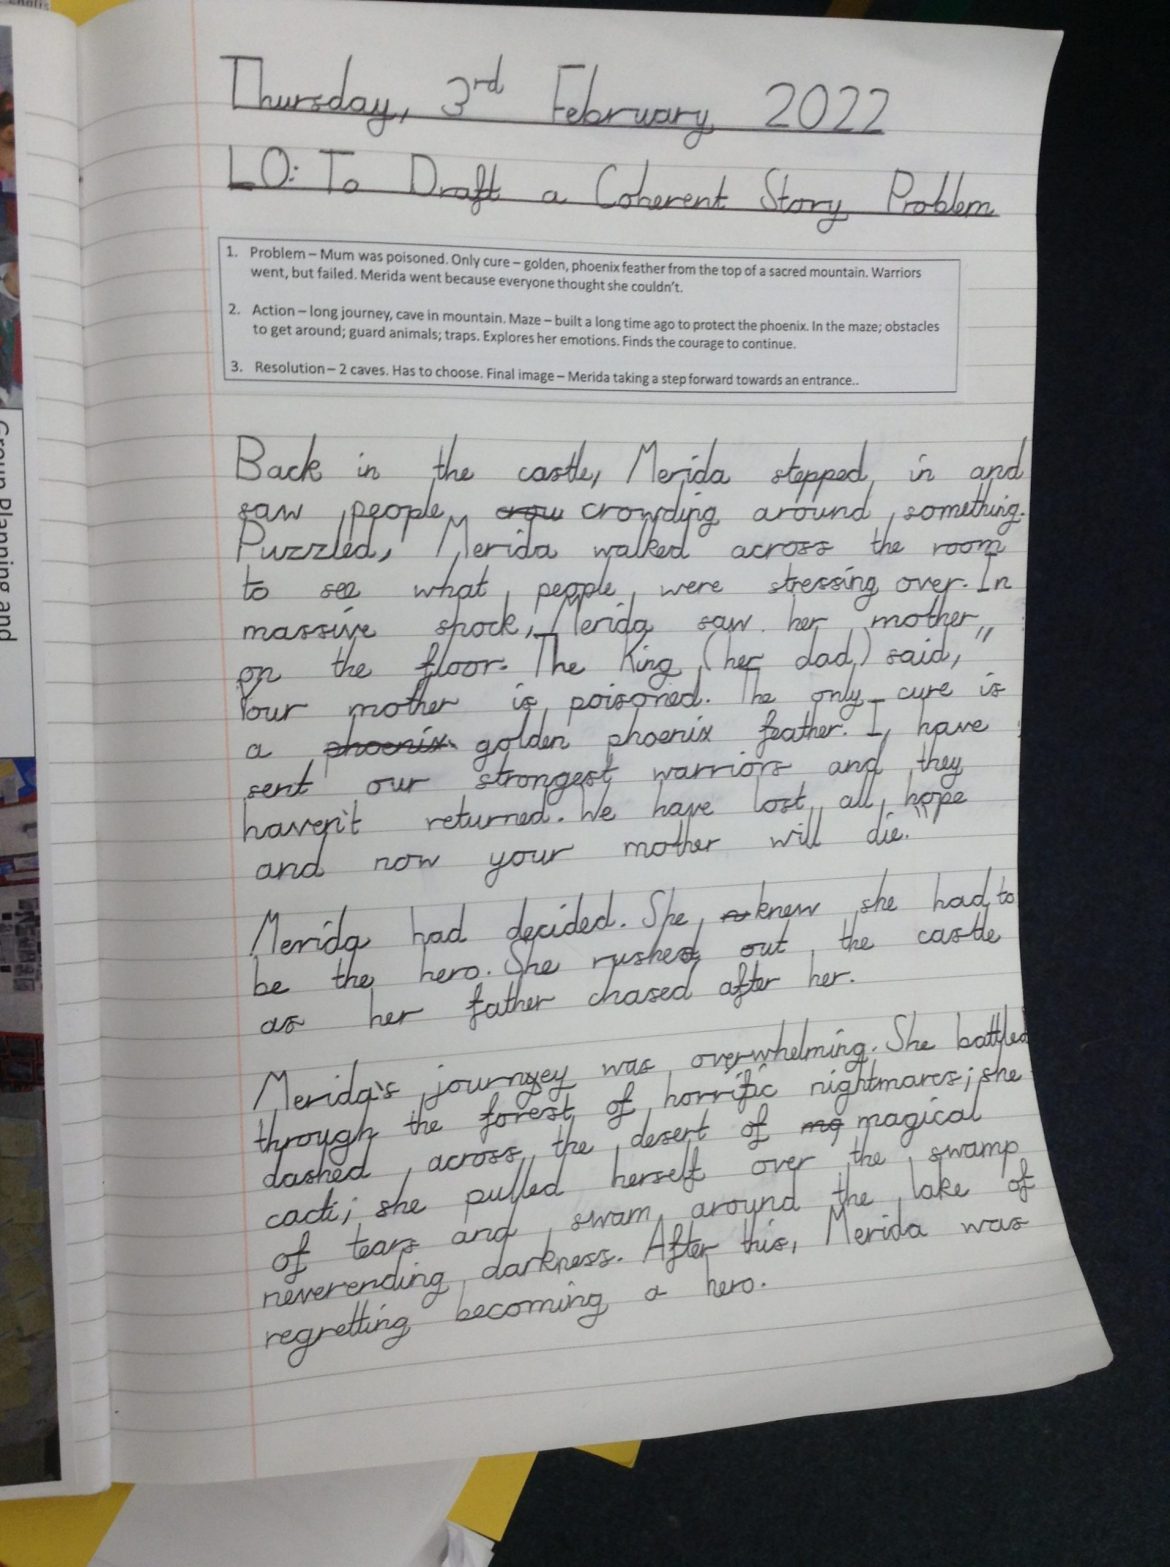 Thursday, 3rd February 2022
LO: To Draft a Coherent Story Problem
1. Problem – Mum was poisoned. Only cure – golden, phoenix feather from the top of a sacred mountain. Warriors
went, but failed. Merida went because everyone thought she couldn't.
2. Action – long journey, cave in mountain. Maze – built a long time ago to protect the phoenix. In the maze; obstacles
to get around; guard animals; traps. Explores her emotions. Finds the courage to continue.
3. Resolution – 2 caves. Has to choose. Final image – Merida taking a step forward towards an entrance..
Back in the castle, Merida stepped in and
saw people crow crowding around something.
Puzzled, Merida walked across the room
to see what people were stressing over. In
massive shock, Merida saw her mother
on the floor. The King (her dad) said, "
Your mother is poisoned. The only cure is
a phoenix golden phoenix feather. I have
sent our strongest warriors and they
haven't returned. We have lost all hope
and now your mother will die."
Merida had decided. She n knew she had to
be the hero. She rushed out the castle
as her father chased after her.
Merida's journyey was overwhelming. She battled
through the forest of horrific nightmares; she
dashed across the desert of mg magical
cacti; she pulled herself over the swamp
of tears and swam around the lake of
neverending darkness. After this, Merida was
regretting becoming a hero.
Group Planning and